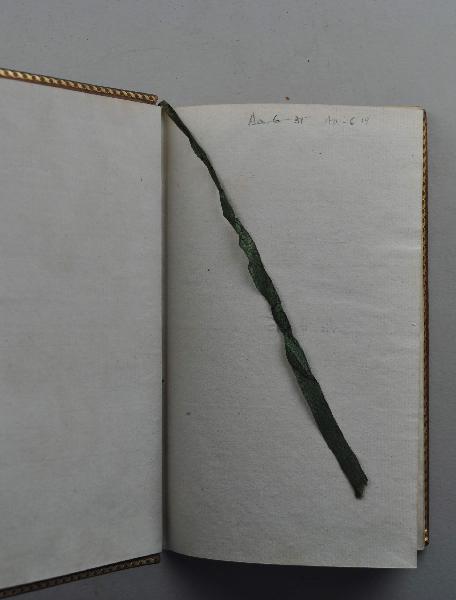 Aa-6-31 Aa-6 19